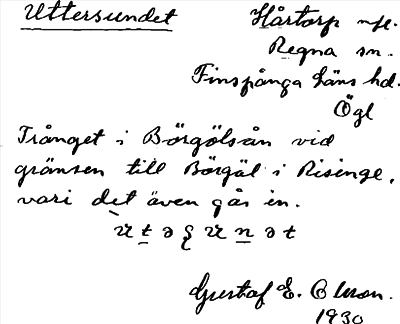 Uttersundet
Hårtorp npl.
Regna sn.
Finspånga läns hd.
Ögl
Trånget i Börgölsån vid
gränsen till Börgöl i Risinge,
vari det även går in.
Gustaf E. Olsson.
1930